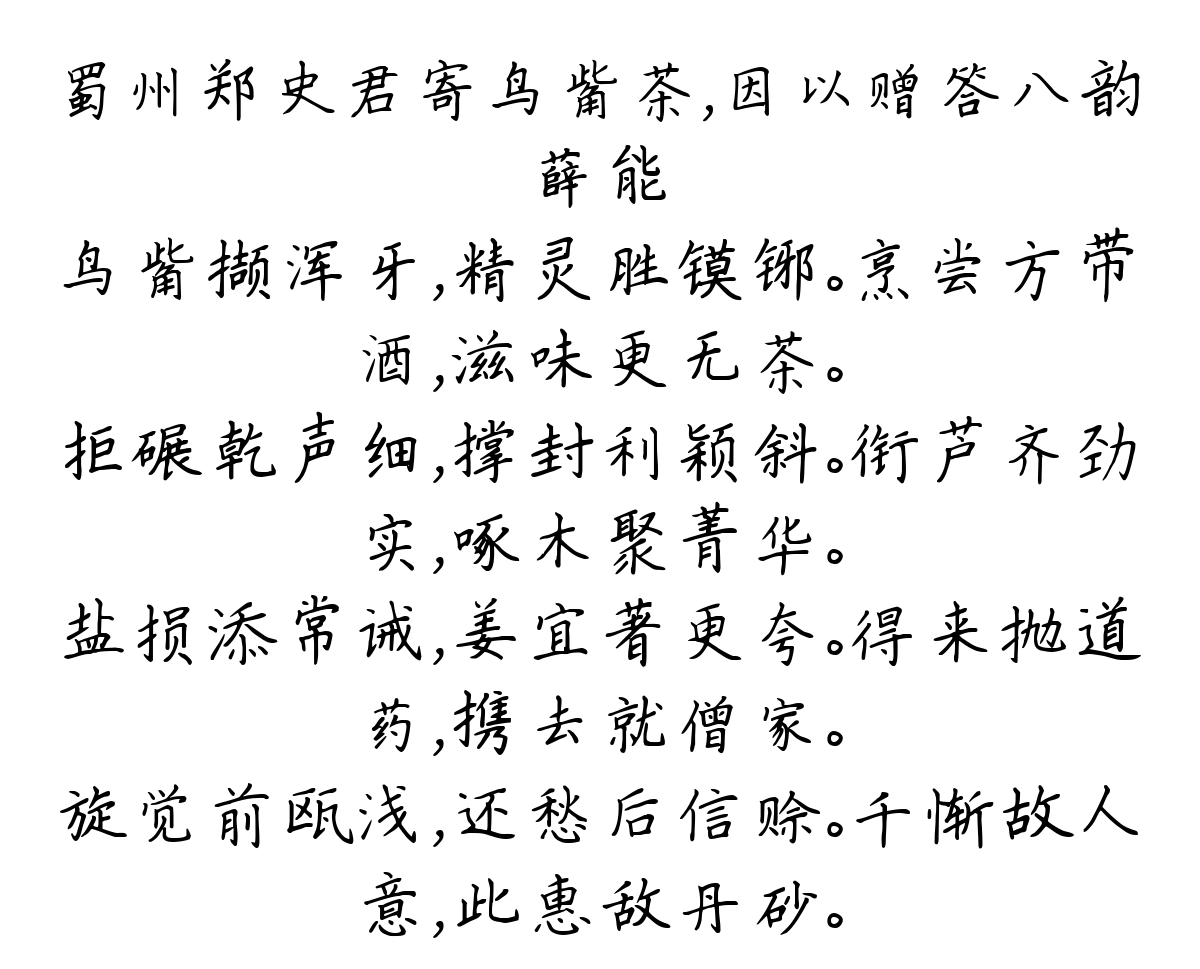 蜀州郑史君寄鸟觜茶,因以赠答八韵
薛能
鸟觜撷浑牙,精灵胜镆铘。烹尝方带
酒,滋味更无茶。
拒碾乾声细,撑封利颖斜。衔芦齐劲
实,啄木聚菁华。
盐损添常诫,姜宜著更夸。得来抛道
药,携去就僧家。
旋觉前瓯浅,还愁后信赊。千惭故人
意,此惠敌丹砂。